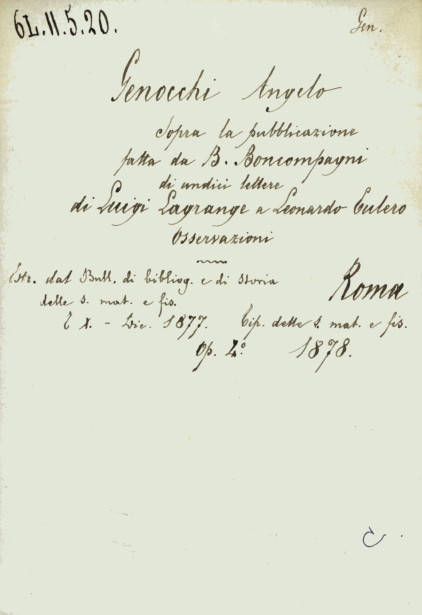 6L.11.5.20.
Gen.
Genocchi Angelo
Sopra la pubblicazione
fatta da B. Boncompagni
di undici lettere
di Luigi Lagrange a Leonardo Eulero
Osservazioni
Estr. dal Bull. di bibliog. e di storia
delle s. mat. e fis.
Roma
T X. - Dic. 1877. Tip. delle s. mat. e fis.
Op. 4.º 1878.
C